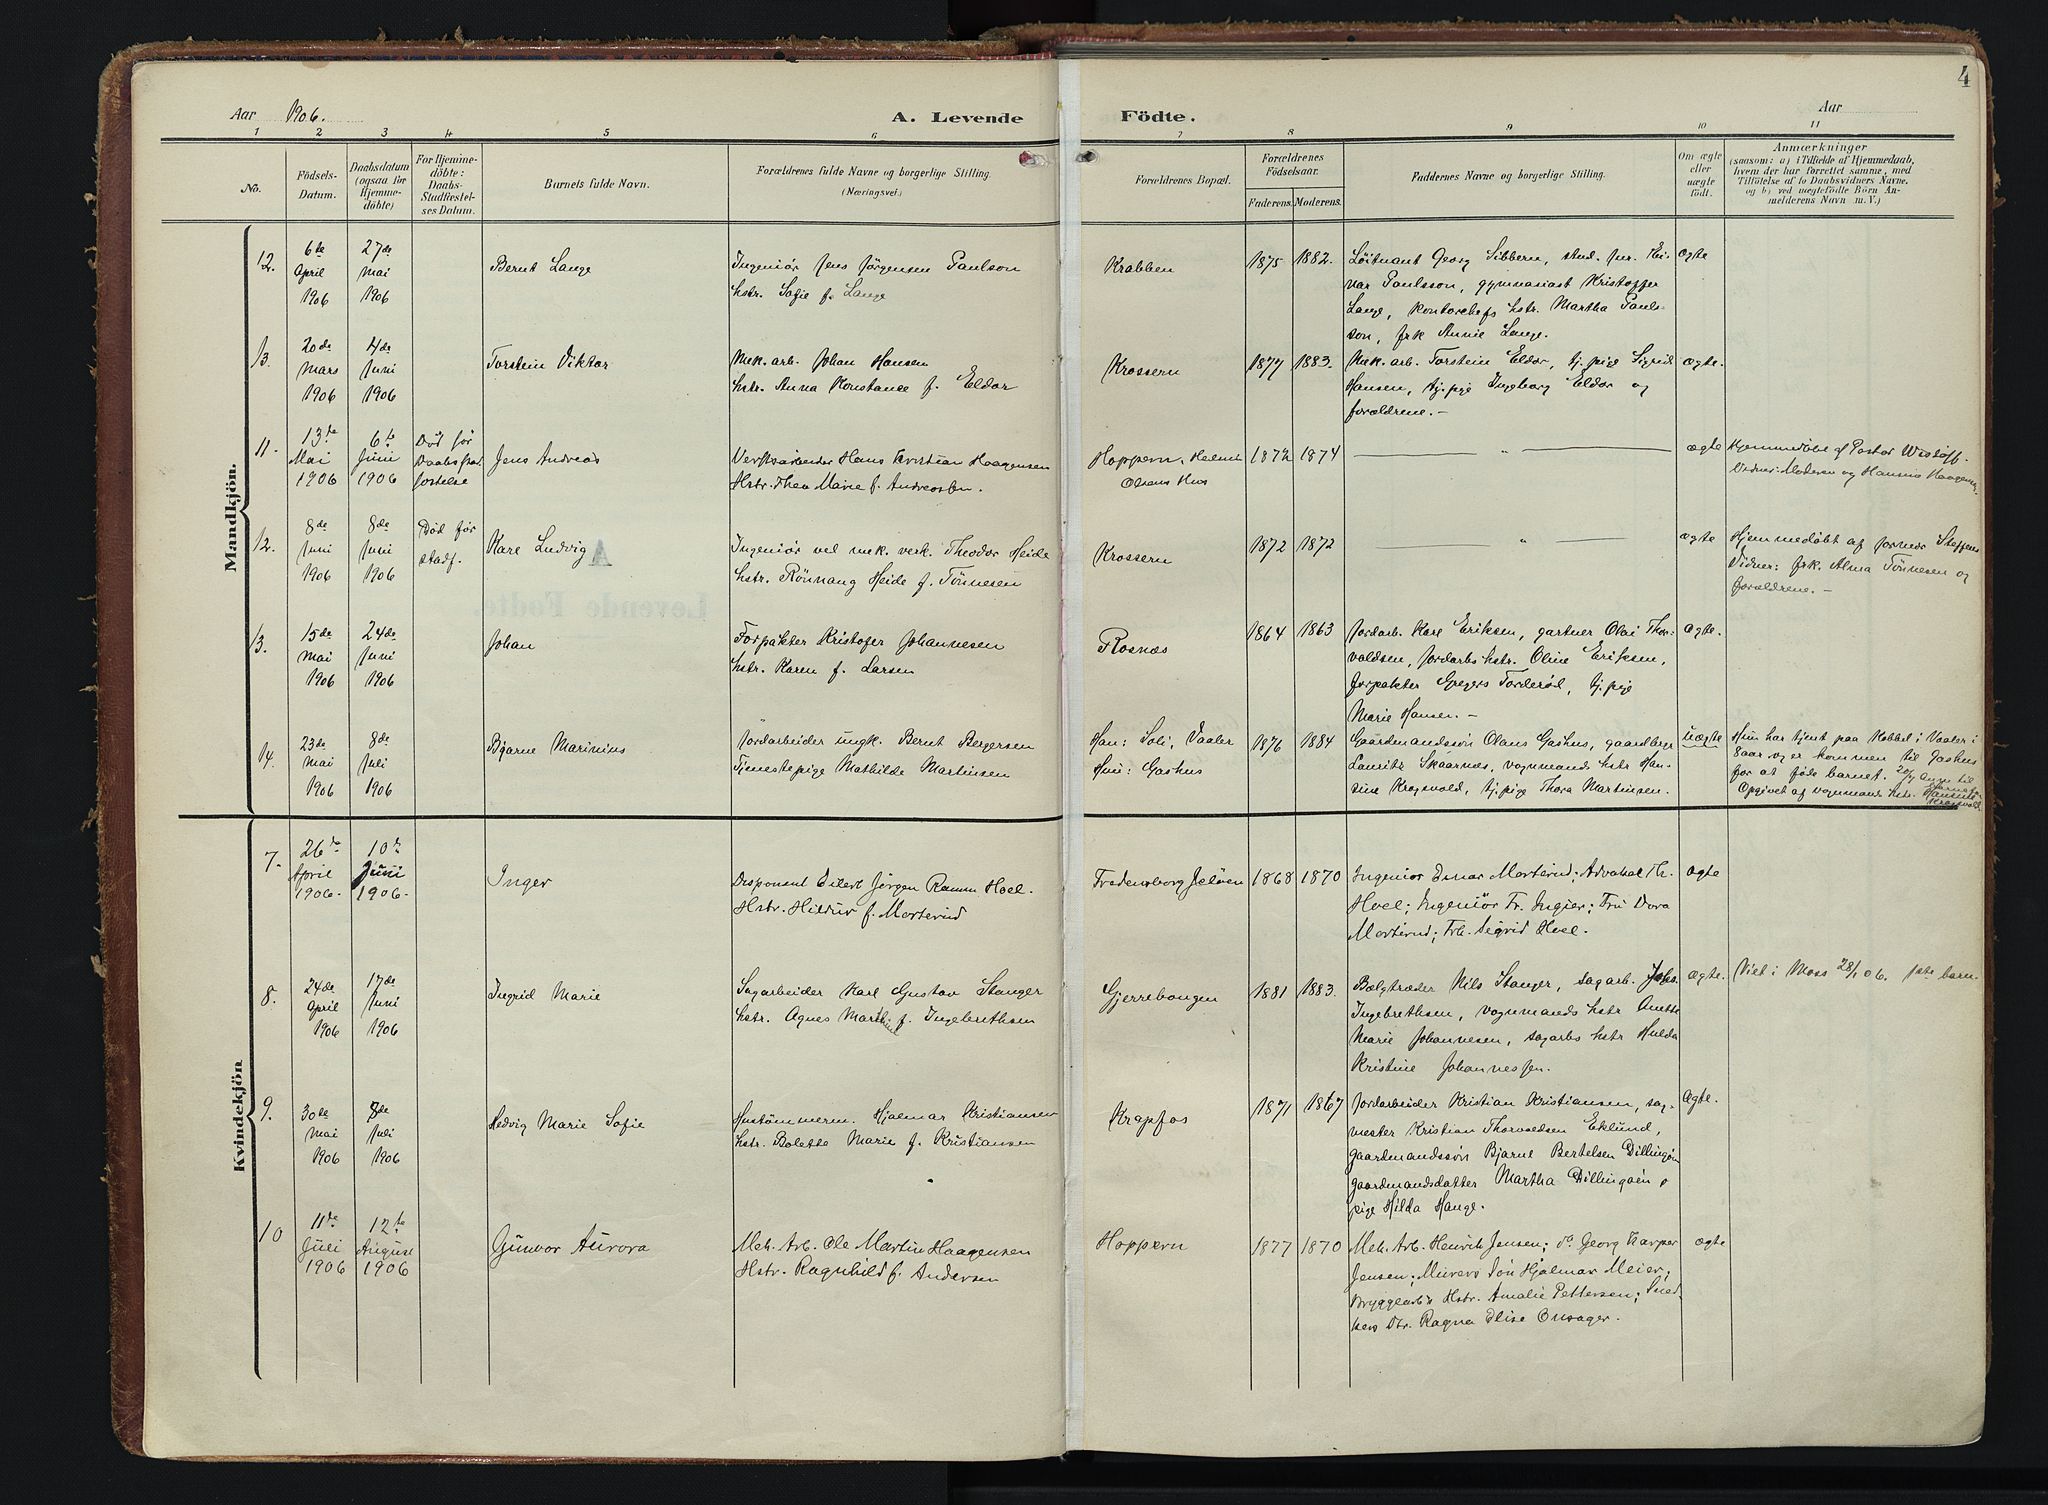 4
Aar 1906.
A. Levende Födte.
Aar
1 2 3 4 5 6 7 8 9 10 11
No.
Födsels-
Datum.
Daabsdatum
(ogsaa for
Hjemme-
döbte)
For Hjemme-
döbte:
Daabs-
Stadfæstel-
ses Datum.
Barnets fulde Navn.
Forældrenes fulde Navne og borgerlige Stilling.
(Næringsvei.)
Forældrenes Bopæl.
Forældrenes
Födselsaar.
Faderens. Moderens.
Faddernes Navne og borgerlige Stilling.
Om ægte
eller
uægte
födt.
Anmærkninger
(saasom: a) i Tilfælde af Hjemmedaab,
hvem der har forrettet samme, med
Tilföielse af to Daabsvidners Navne,
og b) ved uægtefödte Börn An-
melderens Navn m. V.)
Mandkjön.
12.
6te
April
1906
27de
Mai
1906
Bernt Lange
Ingeniør Jens Jørgensen Paulson
hstr. Sofie f. Lange
Krabben
1875 1882.
Løitnant Georg Sibbern, stud. jur. Ei-
nar Paulsson, gymnasiast Kristoffer
Lange, kontorchefs hstr. Martha Pauls-
son, frk Annie Lange.
ægte
13.
20de
Mars
1906
4de
Juni
1906
Torstein Viktor
Mek. arb. Johan Hansen
hstr. Anna Konstance f. Eldør
Krossern
1877 1883.
Mek. arb. Torstein Eldør, tj. pige Sigrid
Hansen, tj. pige Ingeborg Eldør og
forældrene.-
ægte.
11.
13de
Mai
1906
6te
Juni
1906
Død før
Daabsstad-
festelse
Jens Andreas
Verksarbeider Hans Kristian Haagensen
Hstr. Thea Marie f. Andreassen.
Hoppern, Helmer
Olsens Hus
1872 1874
"
ægte
Hjemmedøbt af Pastor Wisløff.
Vidner: Moderen og Hansine Haagensen.
12.
8de
Juni
1906
8de
Juni
1906
Død før
stadf.
Karl Ludvig
Ingeniør ved mek. verk. Theodor Heide
hstr. Rønnaug Heide f. Tønnesen
Krossern
1872 1872
"
ægte
Hjemmedøbt af jormor Steffens
Vidner: frk. Alma Tønnesen og
forældrene.-
13.
15de
Mai
1906
24de
Juni
1906
Johan
Forpakter Kristofer Johannesen
hstr. Karen f. Larsen
Rosnæs
1864 1863
Jordarb. Karl Eriksen, gartner Olai Thor-
valdsen, Jordarbs hstr. Oline Eriksen,
forpakter Gregers Torderød, tj. pige
Marie Hansen.-
ægte.
14.
23de
Mai
1906
8de
Juli
1906
Bjarne Marinius
Jordarbeider ungk. Bernt Bergersen
Tjenestepige Mathilde Martinsen
Han: Soli, Vaaler
Hun: Gashus
1876 1884
Gaardmandssøn Olaus Gashus, gaardbrger
Lauritz Skaarnæs, vognmands hstr Han-
sine Krogsvold, tj. pige Thora Martinsen.
uægte
Hun har tjent paa Kobbel i Vaaler i
8 aar og er kommen til Gashus
for at føde barnet.
Opgivet af vognmands hstr. Hansine
Krogsvold
Kvindekjön
7.
26de
April
1906.
10de
Juni
1906.
Inger
Disponent Eilert Jörgen Ramm Hoel.
Hstr. Hildur f. Morterud
Fredensborg Jelöen
1868 1870
Ingeniør Einar Morterud; Advokat Th.
Hoel; Ingeniör Fr. Ingier; Fru Dora
Morterud; Frk. Sigrid Hoel.
ægte
8.
24de
April
1906
17de
Juni
1906
Ingrid Marie
Sagarbeider Karl Gustav Stanger
hstr. Agnes Marthine f. Ingebrethsen
Gjerrebogen
1881 1883.
Bælgtræder Nils Stanger, sagarb. Johs.
Ingebrethsen, vognmands hstr Anette
Marie Johannesen, sagarbs hstr Hulda
Kristine Johannessen.
ægte.
Viet i Moss 28/1 06. 1ste barn
9.
30de
Mai
1906
8de
Juli
1906
Hedvig Marie Sofie
Hustømmerm. Hjalmar Kristiansen
hstr. Bolette Marie f. Kristiansen
Krapfos
1871 1867
Jordarbeider Kristian Kristiansen, sag-
mester Kristian Thorvaldsen Eklund,
gaardmandssøn Bjarne Bertelsen Dillingøen
gaardmandsdatter Martha Dillingøen,
pige Hilda Hauge.
Ægte.
10
11te
Juli
1906
12te
August
1906
Gunvor Aurora
Mek. Arb. Ole Martin Haagensen
Hstr. Ragnhild f. Andersen
Hoppern
1877 1870
Mek. Arb. Henrik Jensen; do Georg Karper
Jensen; Murers Søn Hjalmar Meier;
Bryggearb's Hstr. Amalie Pettersen; Sned-
kers Dtr. Ragna Elise Onsager.
ægte